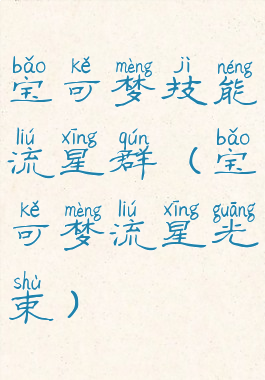 bǎo kě mèng jì néng
宝可梦技能
liú xīng qún bǎo
流星群(宝
kě mèng liú xīng guāng
可梦流星光
shù
束)